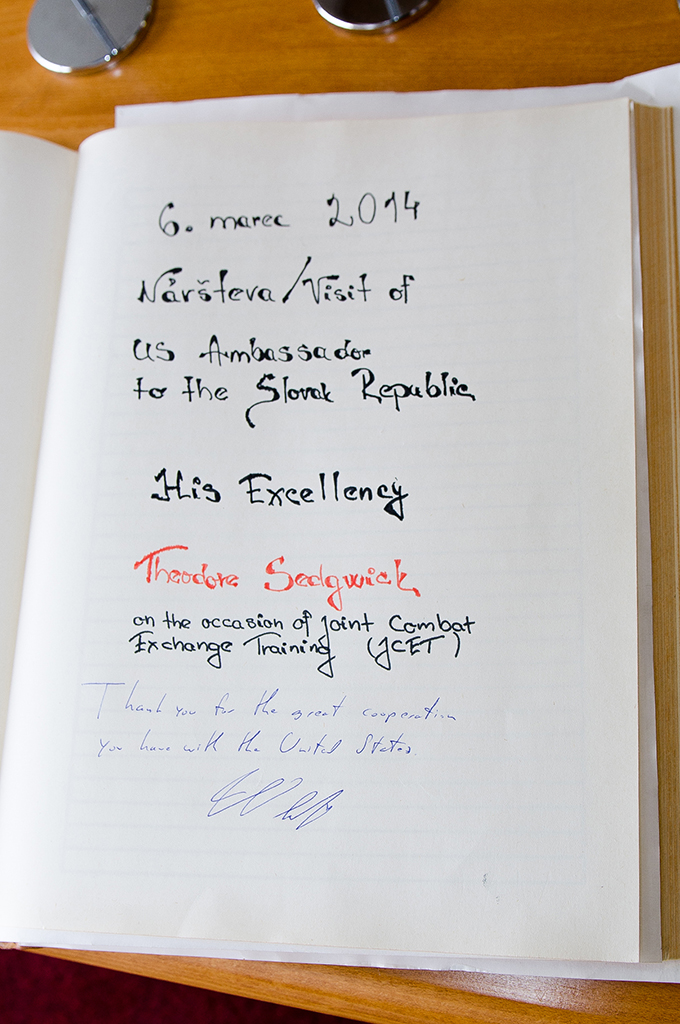 6. marec 2014
Návšteva/Visit of
US Ambassador
to the Slovak Republic
His Excellency
Theodore Sedgwick
on the occasion of Joint Combat
Exchange Training (JCET)
Thank you for the great cooperation
you have with the United States.